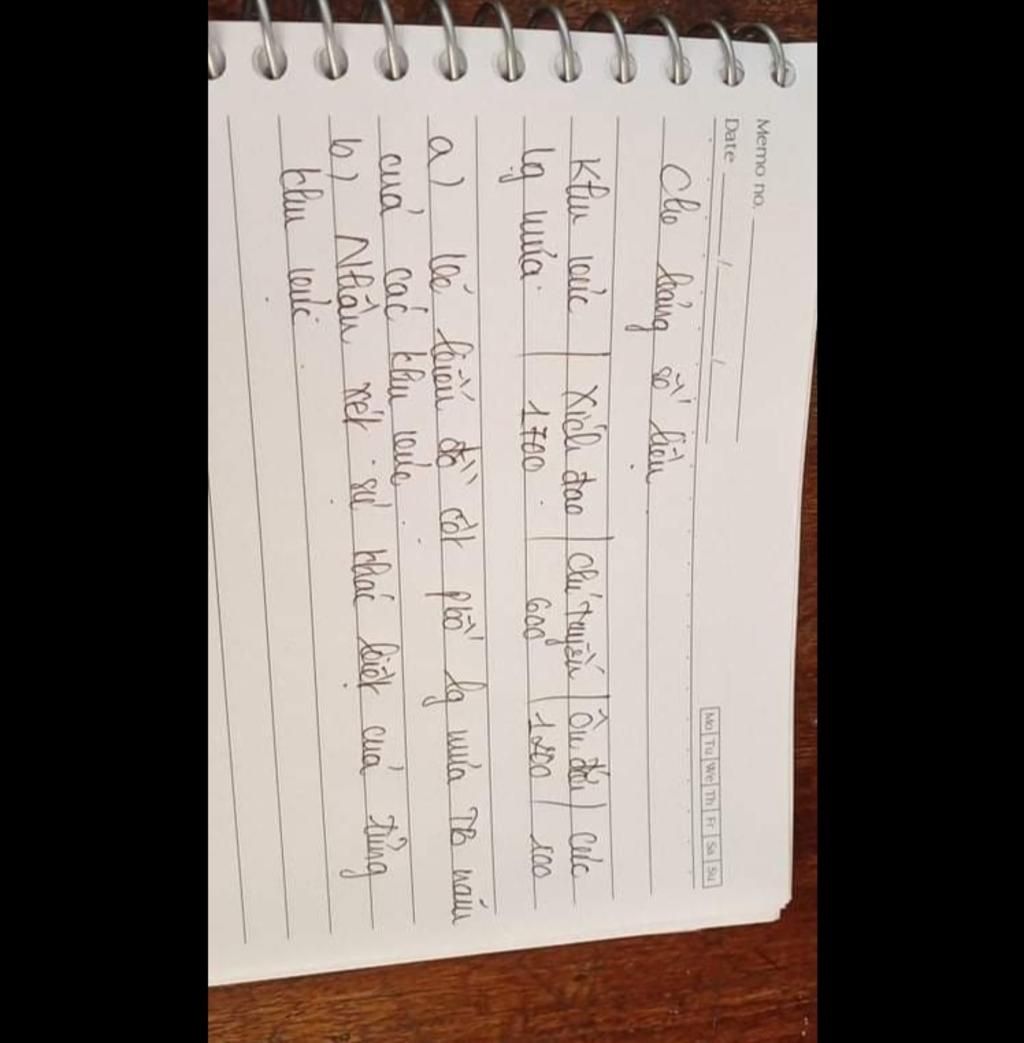 Memo no.
Date / /
Mo Tu We Th Fr Sa Su
Cho bảng số liệu
Khu vực | Xích đạo | Chí tuyến | Ôn đới | Cực
lg mưa | 1700 | 600 | 1200 | 100
a) Vẽ biểu đồ cột phố lg mưa TB năm
của các khu vực
b) Nhận xét sự khác biệt của từng
khu vực